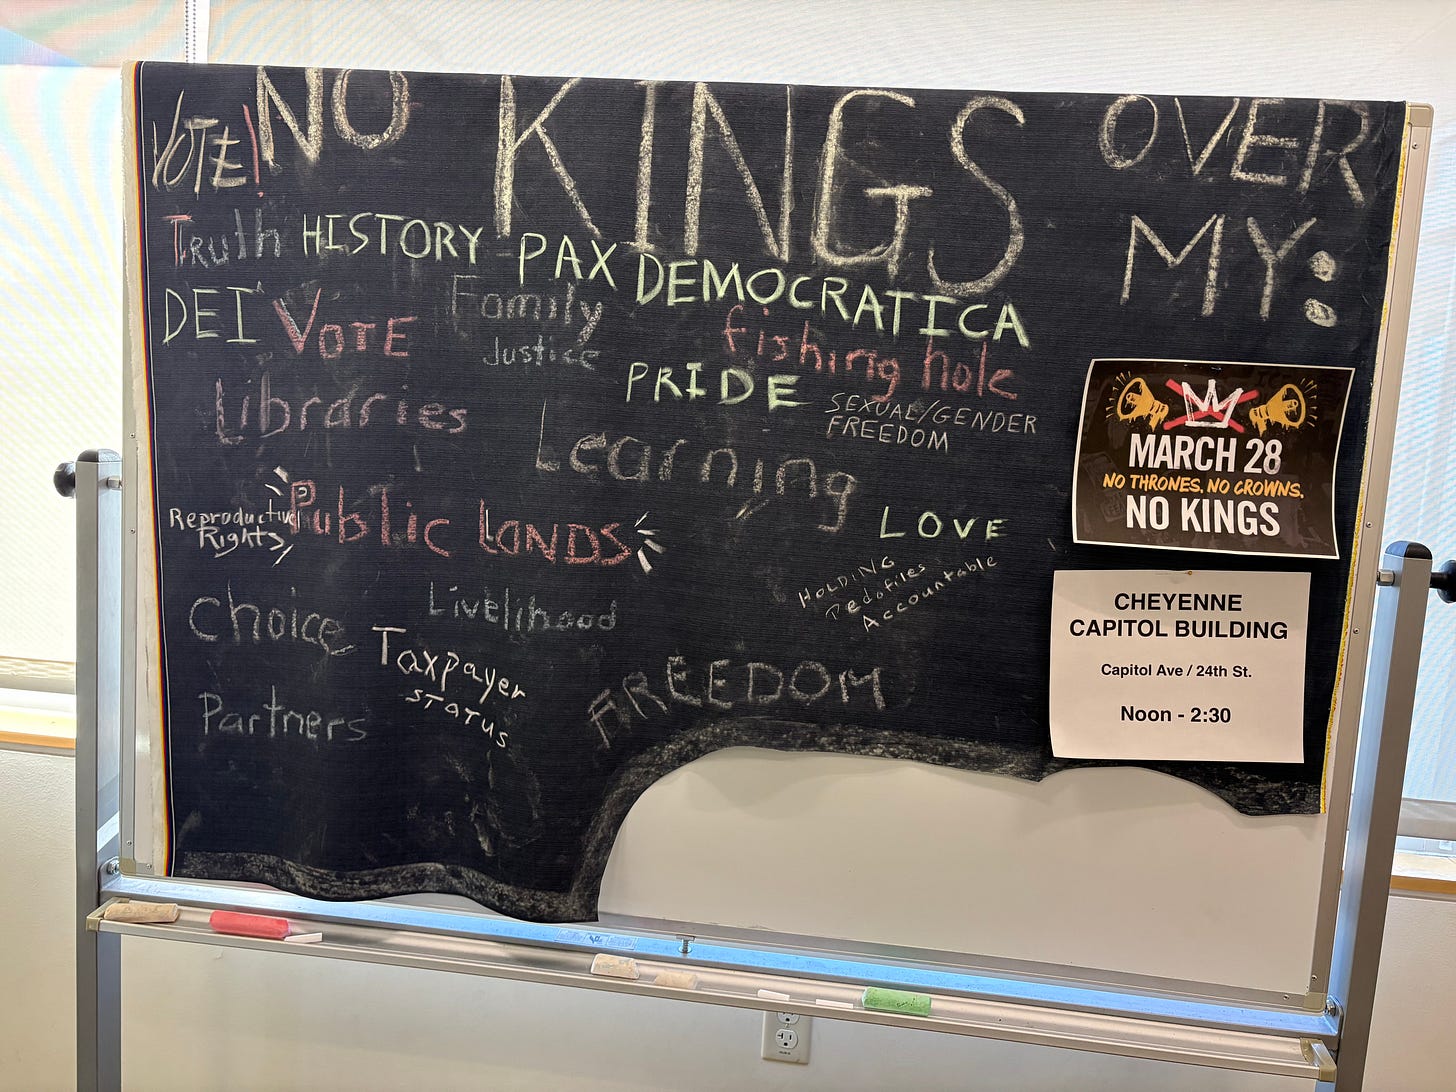 VOTE!
NO KINGS OVER
MY:
Truth
HISTORY
PAX DEMOCRATICA
DEI
VOTE
Family
Justice
fishing hole
PRIDE
SEXUAL/GENDER
FREEDOM
Libraries
Learning
Reproductive
Rights
Public LANDS
LOVE
HOLDING
Pedofiles
Accountable
Choice
Livelihood
Taxpayer
STATUS
Partners
FREEDOM
MARCH 28
NO THRONES. NO CROWNS.
NO KINGS
CHEYENNE
CAPITOL BUILDING
Capitol Ave / 24th St.
Noon - 2:30